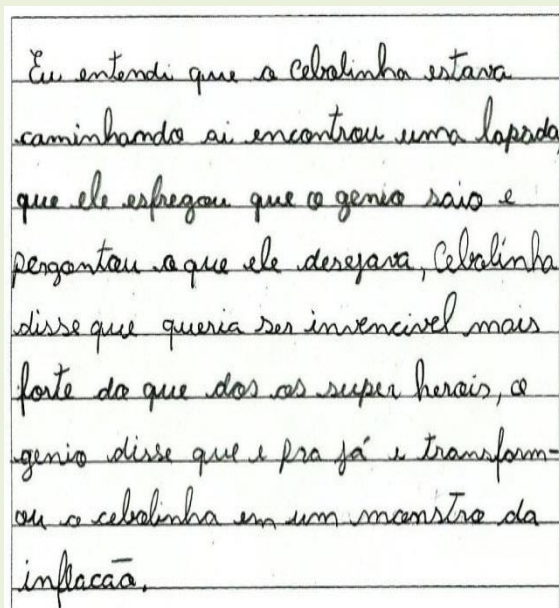 Eu entendi que o Cebolinha estava
caminhando ai encontrou uma lapada,
que ele esfregou que o genio saio e
pergontou o que ele desejava, Cebolinha
disse que queria ser invencivel mais
forte do que dos os super herois, o
genio disse que e pra já e transform-
ou o cebolinha em um monstro da
inflacão.